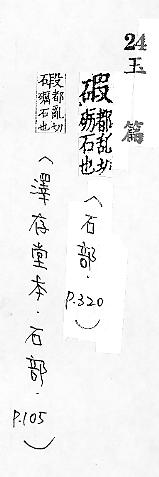 24
玉篇
碬都乱切
礪石也
(石部.
P.320)
段都亂切
石礪石也
(澤存堂本.石部.
P.105)